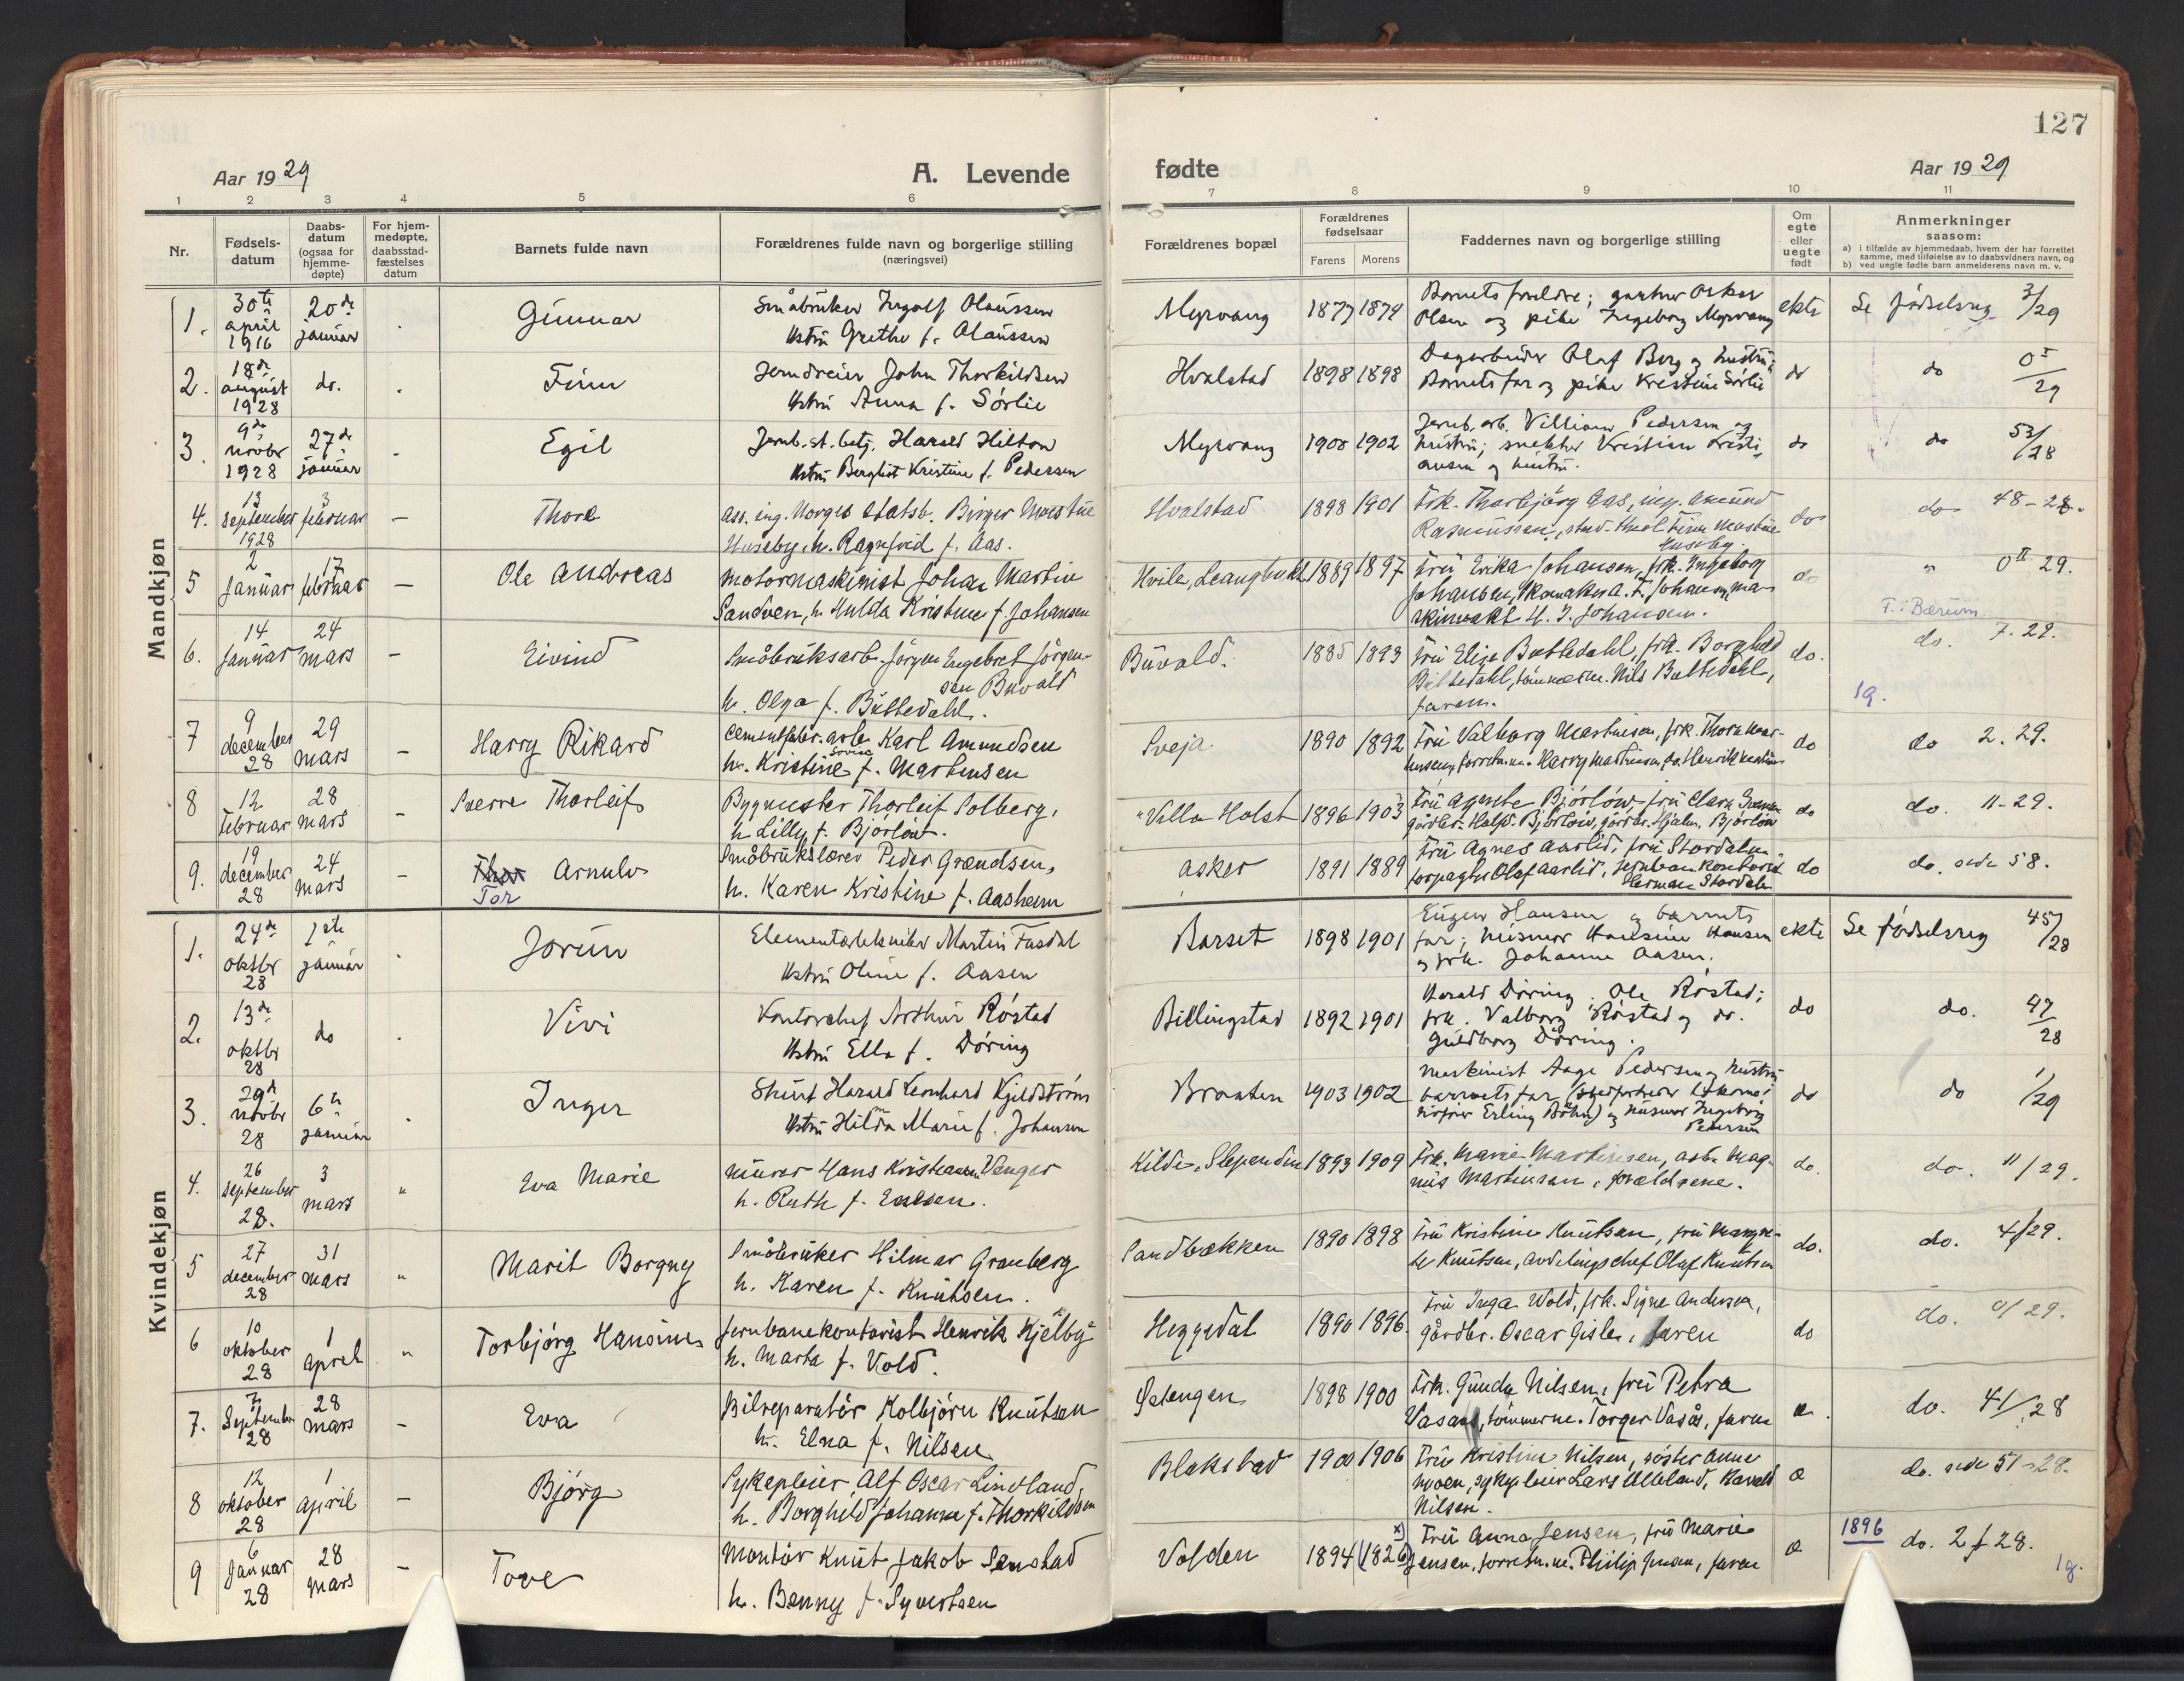 127
Aar 1929
A. Levende
fødte
Aar 1929
1 2 3 4 5 6 7 8 9 10 11
Nr.
Fødsels-
datum
Daabs-
datum
(ogsaa for
hjemme-
døpte)
For hjem-
medøpte,
daabsstad-
fæstelses
datum
Barnets fulde navn
Forældrenes fulde navn og borgerlige stilling
(næringsvei)
Forældrenes bopæl
Forældrenes
fødselsaar
Farens Morens
Faddernes navn og borgerlige stilling
Om
egte
eller
uegte
født
Anmerkninger
saasom:
a) i tilfælde av hjemmedaab, hvem der har forrettet
samme, med tilføielse av to daabsvidners navn, og
b) ved uegte fødte barn anmelderens navn m. v.
Mandkjøn
1. 30te april 1916
20de januar
Gunnar
Småbruker Ingolf Olaussen
Hstru Grethe f. Olaussen
Myrvang
1877 1879
Barnets foreldre; gartner Oskar
Olsen og pike Ingeborg Myrvang
ekte
Se fødselsreg 3/29
2. 18de august 1928
do.
Finn
Jerndreier John Thorkildsen
Hstru Anna f. Sørlie
Hvalstad
1898 1898
Dagarbeider Olaf Berg og hustru;
Barnets far og pike Kristine Sørlie
do
do 0I/29
3. 9de novbr 1928
27de januar
Egil
Jernb.st.betj. Harald Hilton
Hstru Berghit Kristine f. Pedersen
Myrvang
1900 1902
Jernb. arb. Villiam Pedersen og
hustru; snekker Kristian Kristi
ansen og hustru.
do
do 53/28
4. 13 september 1928
3 februar
Thore
Ass. ing. Norges Statsb. Birger Moestue
Huseby, h. Ragnfrid f. Aas.
Hvalstad
1898 1901
Frk. Thorbjørg Aas, ing. Amund
Rasmussen, stud. Finn Moestue
Huseby
do
do 48-28.
5 2 januar
17 februar
Ole Andreas
Motormaskinist Johan Martin
Sandven, h. Hulda Kristine f. Johansen
Hvile, Leangbukt
1889 1897
Fru Erika Johansen, frk. Ingeborg
Johansen, skomaker A. F. Johansen, ma
skinvakt H. J. Johansen.
do
" 0II 29.
F. i Bærum
6. 14 januar
24 mars
Eivind
Småbruksarb. Jørgen Engebret Jørgen-
sen Buvald
h. Olga f. Büttedahl.
Büvald.
1885 1893
Fru Elise Büttedahl, frk. Borghild
Büttedahl, tømmerm. Nils Büttedahl,
faren.
do.
do. 7.29.
19.
7 9 december 28
29 mars
Harry Rikard
Cementfabr. arb. Karl Amundsen
h. Kristine Lovise f. Martinsen
Sveja
1890 1892
Fru Valborg Martinsen, frk. Thora Mar-
tinsen, forretn.m. Harry Martinsen, do. Henrik Martinsen
do
do 2.29.
8 12 februar
28 mars
Sverre Thorleif
Bygmester Thorleif Solberg,
h. Lilly f. Bjørløw.
"Villa Holst
1896 1903
Fru Agnethe Bjørløw, fru Clara
gårdbr. Halfd. Bjørløw, gårdbr. Hjalm. Bjørløw
do
do. 11-29.
9. 19 december 28
24 mars
Thor Arnulv
Tor
Småbrukslærer Peder Grændsen,
h. Karen Kristine f. Aasheim
Asker
1891 1889
Fru Agnes Aarlid, fru Stordalen
forpagter Olaf Aarlid, jernbanekontorist
Herman Stordalen
do
do. side 58.
Kvindekjøn
1. 24de oktbr 28
1ste januar
Jorun
Elementarbeider Martin Fusdal
Hstru Oline f. Aasen
Barset
1898 1901
Eugen Hansen og barnets
far; husmor Hansine Hansen
og frk. Johanne Aasen.
ekte
Se fødselsreg 45/28
2. 13de oktbr 28
do
Vivi
Kontorchef Arthur Røstad
Hstru Ella f. Døring
Billingstad
1892 1901
Harald Døring, Ole Røstad;
frk. Valborg Røstad og do.
Guldborg Døring.
do
do. 47/28
3. 29d novbr 28
6te januar
Inger
Skuet Harald Leonhard Kjeldstrøm
Hstru Hilda Marie f. Johansen
Braaten
1903 1902
Maskinist Aage Pedersen og hustru
barnets far (stedfortreder
Erling Bøhn) og husmor Ingeborg
Pedersen
do
do 1/29
4. 26 september 28.
3 mars
"
Eva Marie
Murer Hans Kristiansen Venger
h. Ruth f. Enersen.
Kilde, Slependen
1893 1909
Frk. Marie Martinsen, arb. Mag-
nus Martinsen, forældrene.
do.
do. 11/29.
5 27 december 28
31 mars
"
Marit Borgny
Småbruker Hilmar Granberg
h. Karen f. Knutsen.
Sandbækken
1890 1898
Fru Kristine Knutsen, fru Margre-
te Knutsen, avdelingschef Olaf Knutsen
do.
do. 4/29.
6 10 oktober 28
1 april
"
Torbjørg Hansine
Jernbanekontorist Henrik Kjelby
h. Marta f. Vold.
Heggedal
1890 1896.
Fru Inga Wold, frk. Signe Andersen,
gårdbr. Oscar Gisle, faren
do
do. 0/29.
7. 7 september 28
28 mars
Eva
Bilreparatør Kolbjørn Knutsen
h. Elna f. Nilsen
Østengen
1898 1900
Frk. Gunda Nilsen, fru Petra
Vasaas, tømmerm. Torger Vasås, faren
e.
do. 41/28
8 12 oktober 28
1 april
Bjørg
Sykepleier Alf Oscar Lindland,
h. Borghild Johanne f. Thorkildsen
Blakstad
1900 1906
Fru Kristine Nilsen, søster Anne
Moen, sykepleier Lars Ulleland, Harald
Nilsen.
e
do. side 51-28.
9 6 januar 28
28 mars
Tove
Montør Knut Jakob Semstad
h. Benny f. Syvertsen
Volden
1894 (1826) x)
Fru Anna Jensen, fru Marie
Jensen, forretn.m. Philip Jensen, faren
e
1896
do. 2/28.
19.